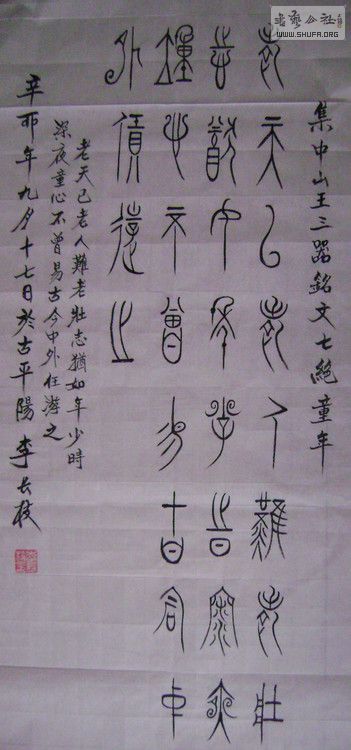 集中山王三器銘文七絕童年
老天已老人難老壯
志猶如年少時深夜
童心不曾易古今中
外任遊之
老天已老人難老壯志猶如年少時
深夜童心不曾易古今中外任游之
辛卯年九月十七日於古平陽 李长枝
WWW.SHUFA.ORG